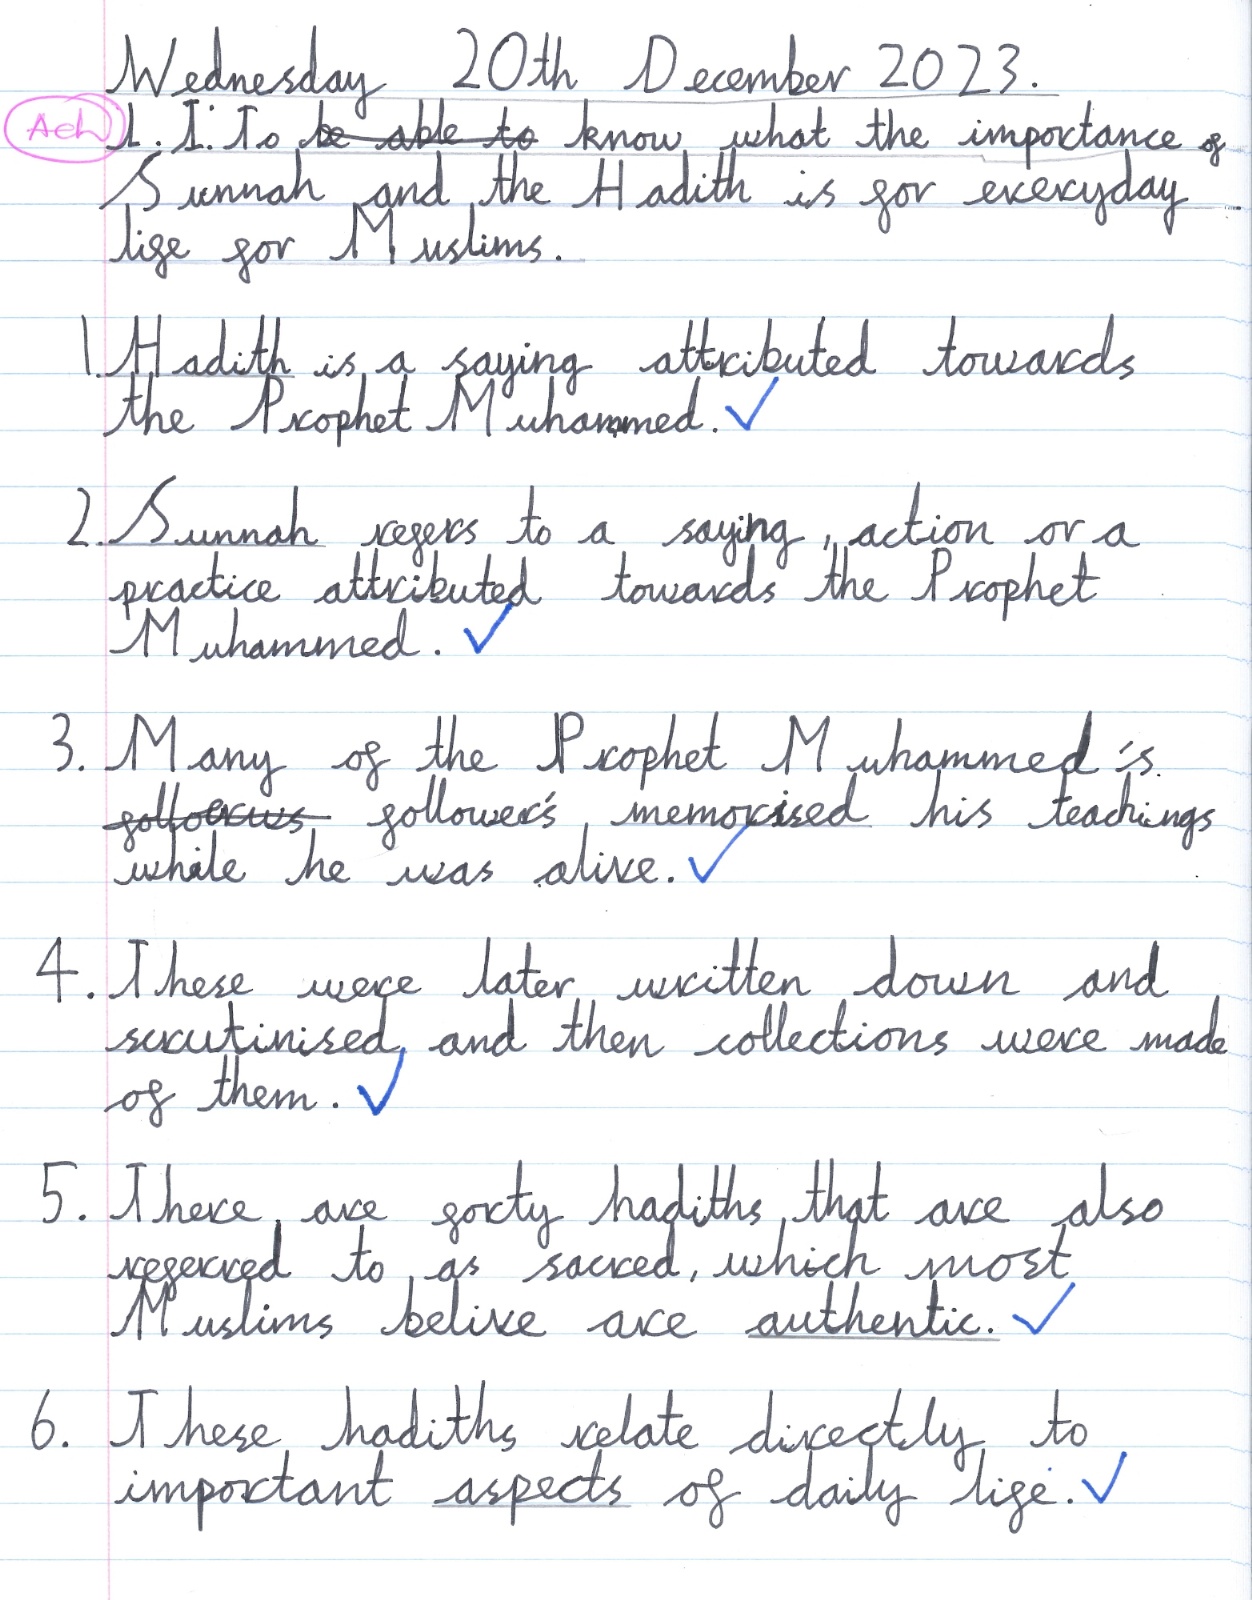 Wednesday 20th December 2023.
Ach L.I: To be able to know what the importance of
Sunnah and the Hadith is for everyday
life for Muslims.
1. Hadith is a saying attributed towards
the Prophet Muhammed. ✓
2. Sunnah refers to a saying, action or a
practice attributed towards the Prophet
Muhammed. ✓
3. Many of the Prophet Muhammed's
follower's memorised his teachings
while he was alive. ✓
4. These were later written down and
scrutinised, and then collections were made
of them. ✓
5. There are forty hadiths, that are also
referred to as sacred, which most
Muslims belive are authentic. ✓
6. These hadiths relate directly to
important aspects of daily life. ✓